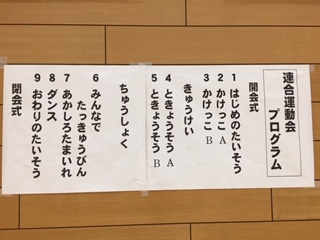 連合運動会
プログラム
開会式
1 はじめのたいそう
2 かけっこ A
3 かけっこ B
きゅうけい
4 ときょうそう A
5 ときょうそう B
ちゅうしょく
6 みんなで
たっきゅうびん
7 あかしろたまいれ
8 ダンス
9 おわりのたいそう
閉会式